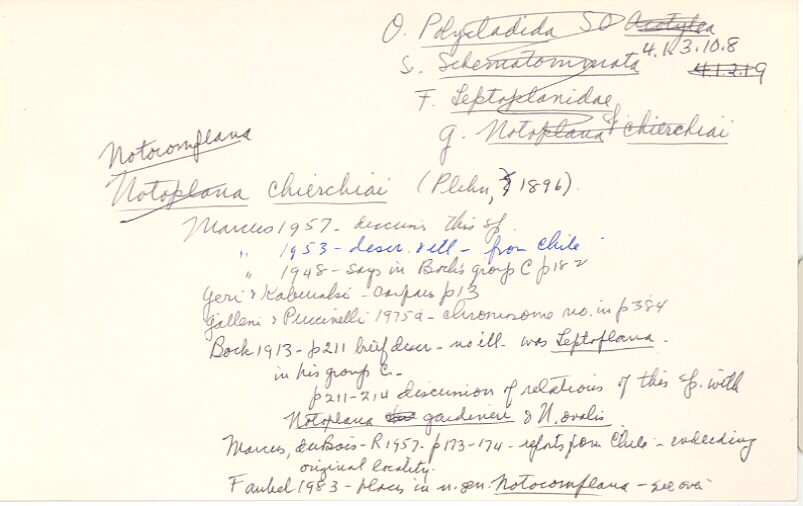 O. Polycladida SO Acotylea
4.1.3.10.8
S. Schematommata 4.1.2.19
F. Leptoplanidae
g. Notoplana chierchiai
Notocomplana
Notoplana chierchiai (Plehn, 1896).
Marcus 1957 - discuss this sp.
" 1953 - descr. & ill - from Chile
" 1948 - says in Bock's group C p182
- compares p13
Galleni & Puccinelli 1975a - chromosome no. in p384
Bock 1913 - p211 brief descr - no ill - was Leptoplana -
in his group C.
p211-214 discussion of relations of this sp. with
Notoplana gardineri & N. ovalis.
Marcus, duBois-R 1957 - p173-174 - reports from Chile - including
original locality.
Faubel 1983 - places in n. gen. Notocomplana - see over